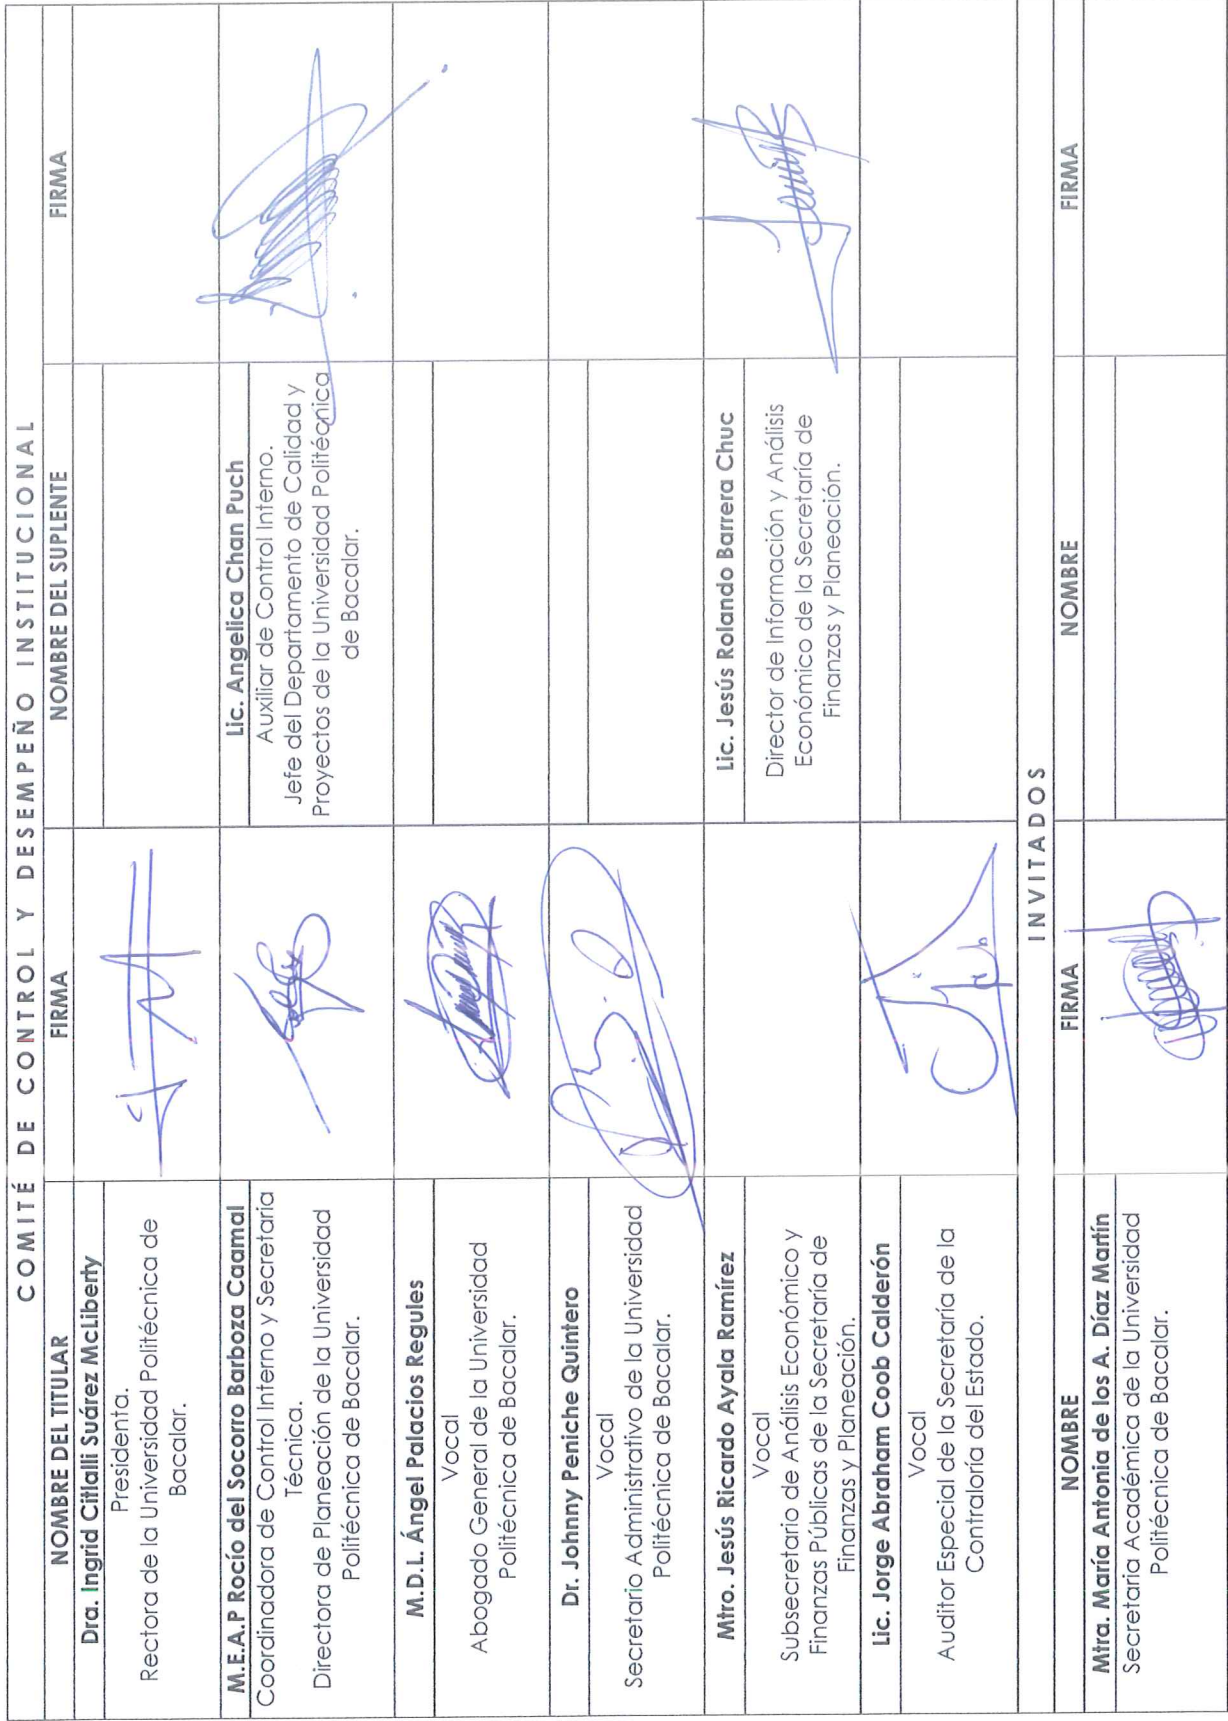 COMITÉ DE CONTROL Y DESEMPEÑO INSTITUCIONAL
NOMBRE DEL TITULAR
FIRMA
NOMBRE DEL SUPLENTE
FIRMA
Dra. Ingrid Citlalli Suárez McLiberty
Presidenta.
Rectora de la Universidad Politécnica de
Bacalar.
M.E.A.P Rocío del Socorro Barboza Caamal
Coordinadora de Control Interno y Secretaria
Técnica.
Directora de Planeación de la Universidad
Politécnica de Bacalar.
Lic. Angelica Chan Puch
Auxiliar de Control Interno.
Jefe del Departamento de Calidad y
Proyectos de la Universidad Politécnica
de Bacalar.
M.D.L. Ángel Palacios Regules
Vocal
Abogado General de la Universidad
Politécnica de Bacalar.
Dr. Johnny Peniche Quintero
Vocal
Secretario Administrativo de la Universidad
Politécnica de Bacalar.
Mtro. Jesús Ricardo Ayala Ramírez
Vocal
Subsecretario de Análisis Económico y
Finanzas Públicas de la Secretaría de
Finanzas y Planeación.
Lic. Jesús Rolando Barrera Chuc
Director de Información y Análisis
Económico de la Secretaría de
Finanzas y Planeación.
Lic. Jorge Abraham Coob Calderón
Vocal
Auditor Especial de la Secretaría de la
Contraloría del Estado.
INVITADOS
NOMBRE
FIRMA
NOMBRE
FIRMA
Mtra. María Antonia de los A. Díaz Martín
Secretaria Académica de la Universidad
Politécnica de Bacalar.